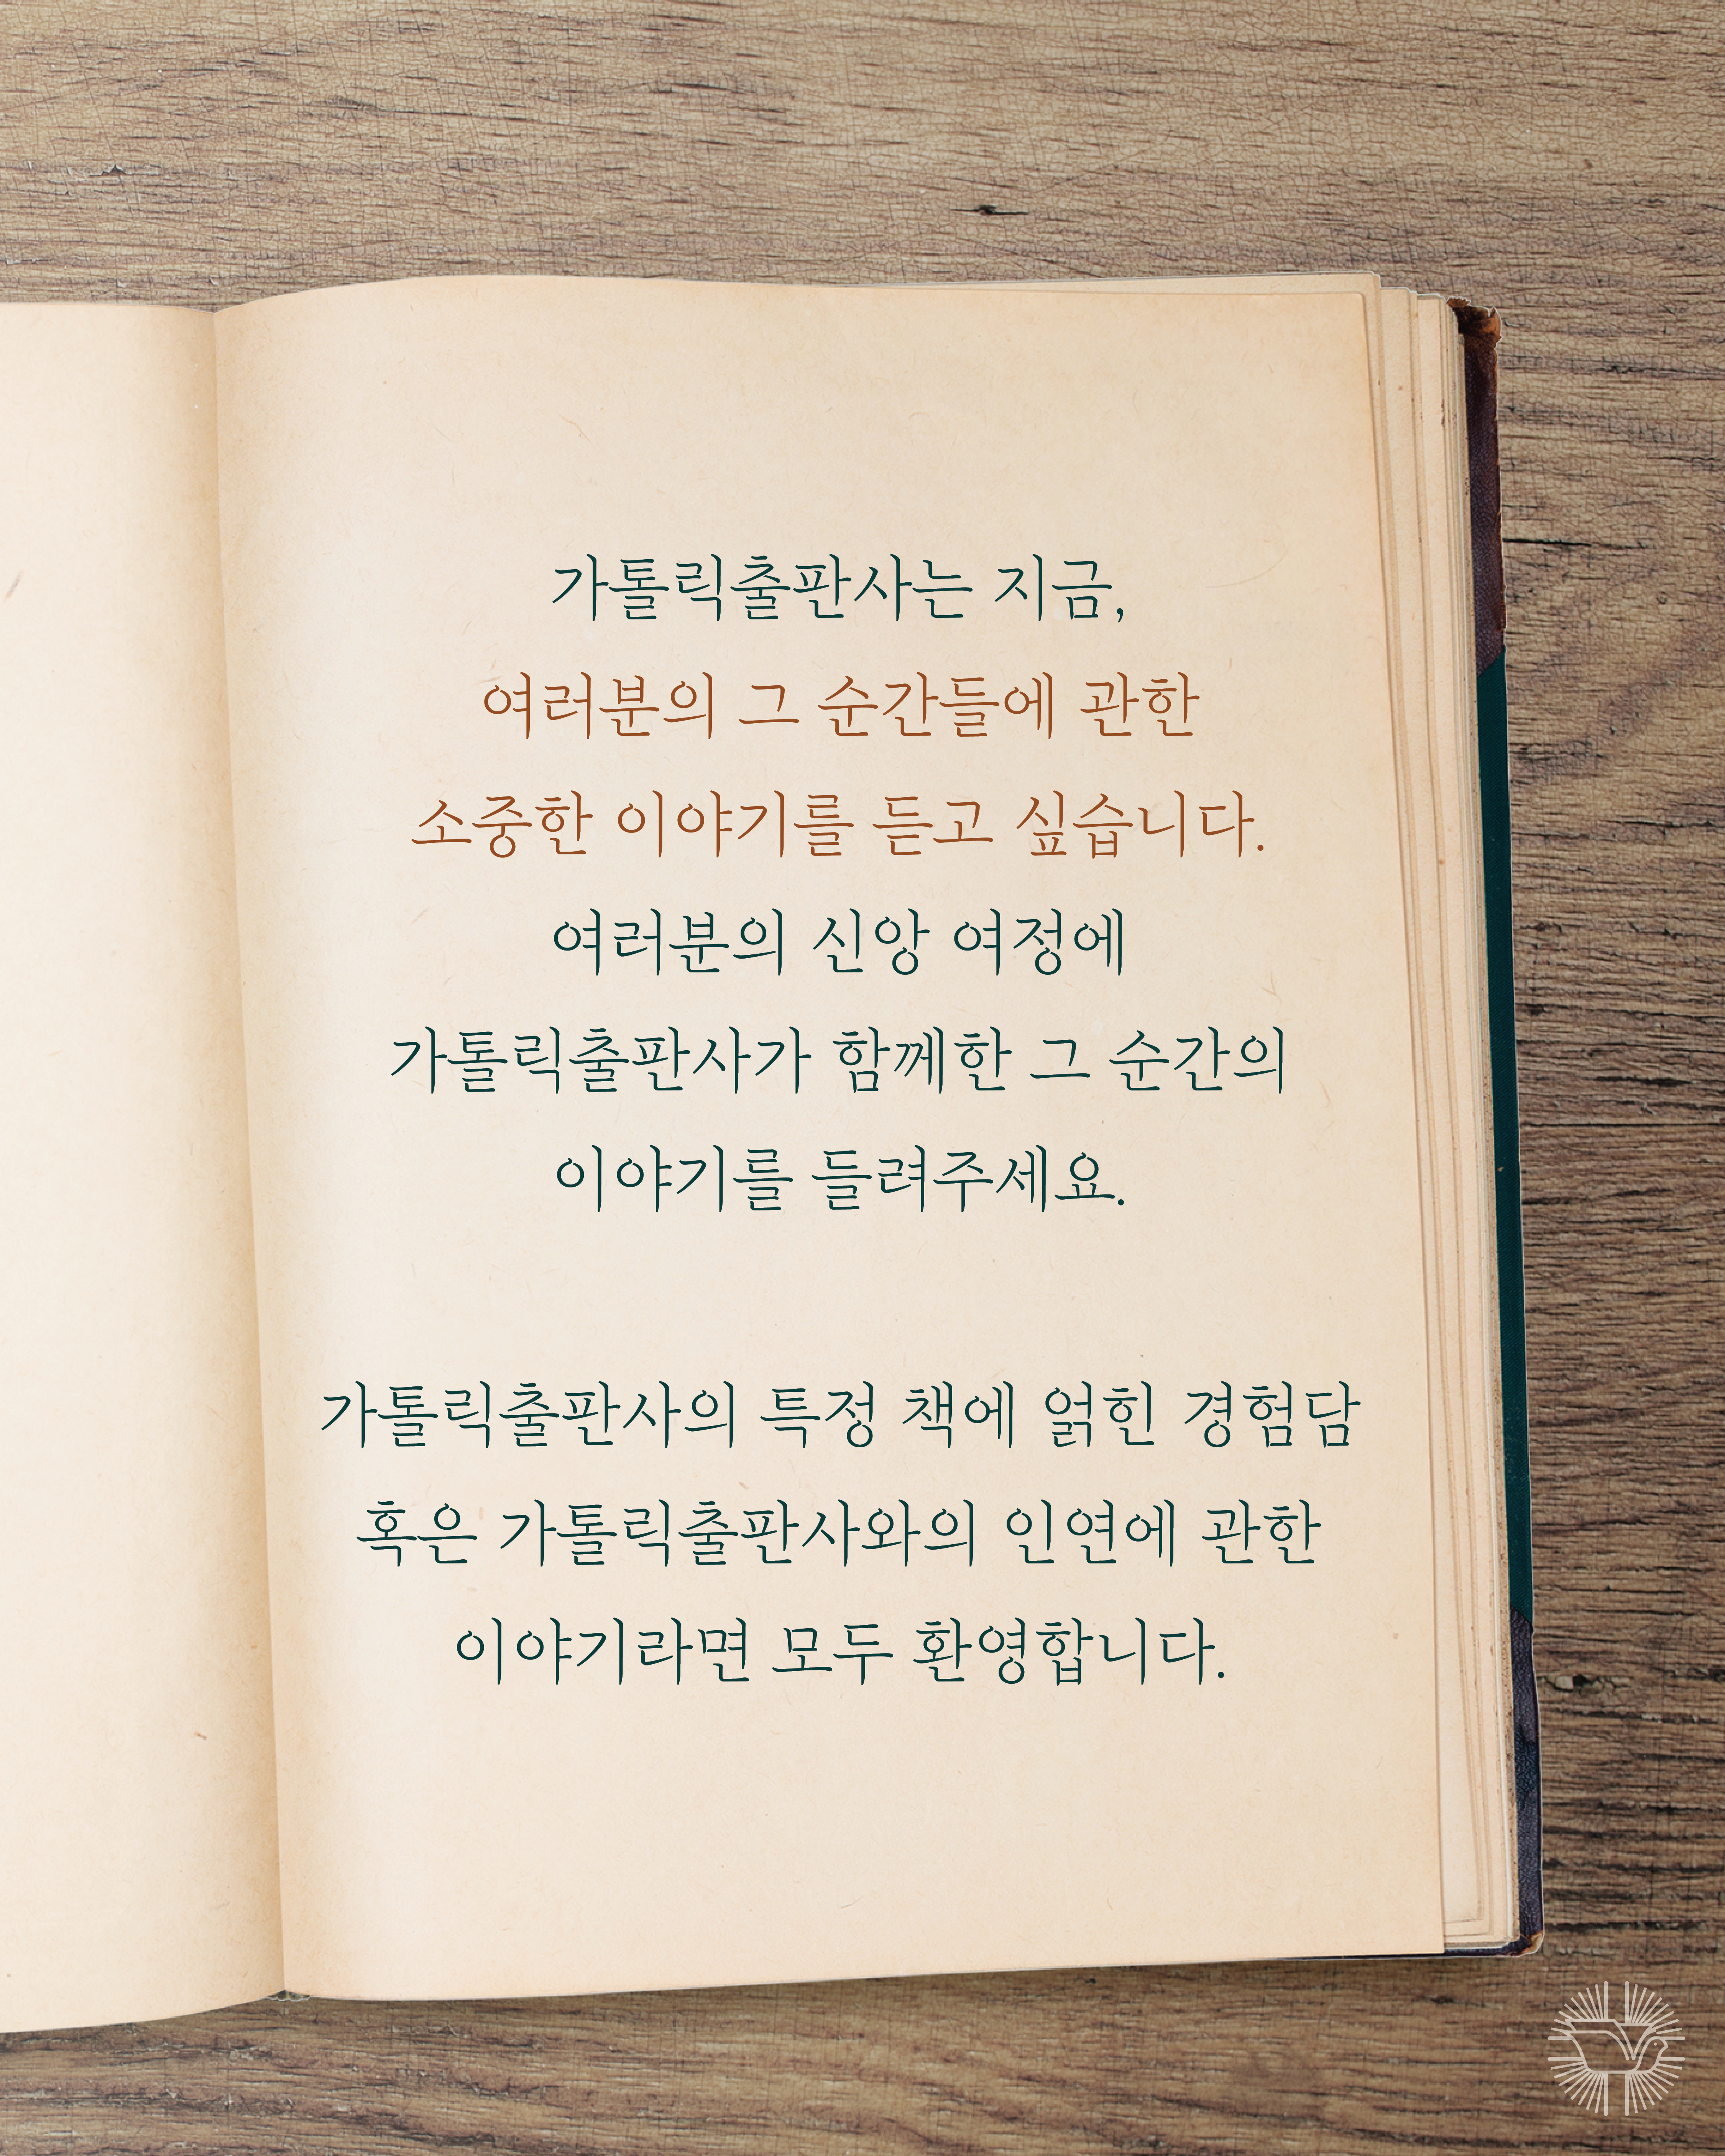 가톨릭출판사는 지금,
여러분의 그 순간들에 관한
소중한 이야기를 듣고 싶습니다.
여러분의 신앙 여정에
가톨릭출판사가 함께한 그 순간의
이야기를 들려주세요.
가톨릭출판사의 특정 책에 얽힌 경험담
혹은 가톨릭출판사와의 인연에 관한
이야기라면 모두 환영합니다.